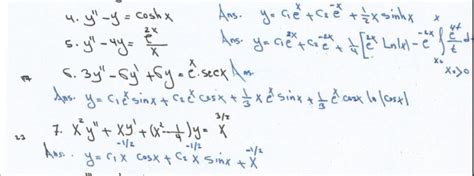 4. y'' - y = cosh x   Ans. y = c₁eˣ + c₂e⁻ˣ + ½ x sinh x
5. y'' - 4y = e²ˣ/x   Ans. y = c₁eˣ + c₂e⁻ˣ + ¼ [e²ˣ ln|x| - e⁻²ˣ ∫ₓ₀ˣ e⁴ᵗ/t dt] x₀>0
6. 3y'' - 6y' + 6y = eˣ. secx Ans
Ans. y = c₁eˣ sinx + c₂eˣ cosx + ⅓ x eˣ sinx + ⅓ eˣ cosx ln|cosx|
7. x²y'' + xy' + (x² - ¼)y = x^3/2
Ans. y = c₁x^-1/2 cosx + c₂ x^-1/2 sinx + x^-1/2